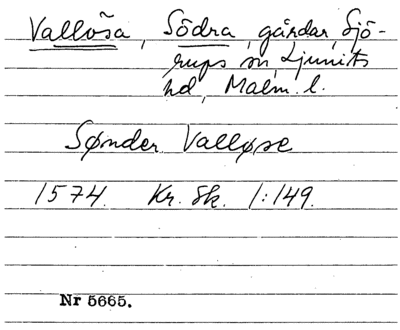 Vallösa, Södra, gårdar, Sjö-
rups sn, Ljunits
hd, Malm. l.
Sønder Valløse
1574. Kr. Sk. 1:149.
Nr 5665.